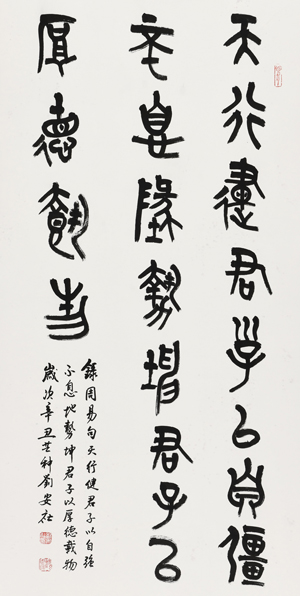 天行健君子以自彊
不息地勢坤君子以
厚德載物
錄周易句天行健君子以自强
不息地勢坤君子以厚德載物
歲次辛丑芒种劉安社